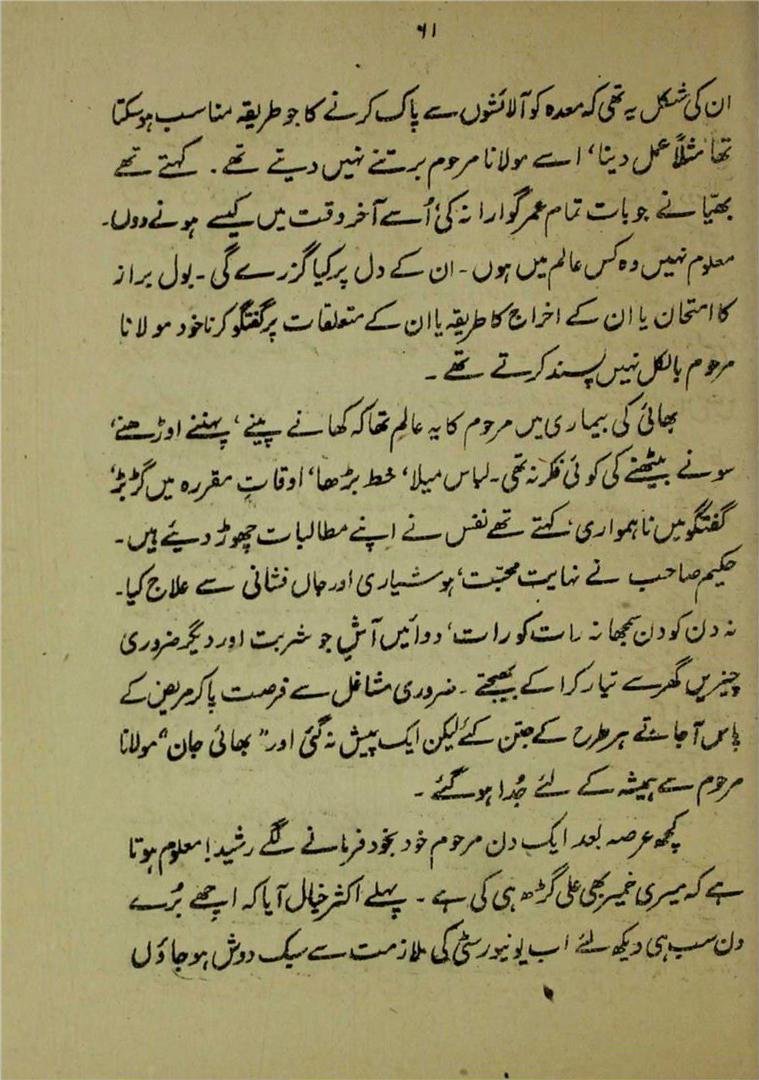 ۶۱
ان کی شکل یہ تھی کہ معدہ کو آلائشوں سے پاک کرنے کا جو طریقہ مناسب ہوسکتا
تھا مثلاً عمل دینا، اسے مولانا مرحوم برتنے نہیں دیتے تھے۔ کہتے تھے
بھیّا نے جو بات تمام عمر گوارا نہ کی، اُسے آخر وقت میں کیسے ہونے دوں۔
معلوم نہیں وہ کس عالم میں ہوں۔ ان کے دل پر کیا گزرے گی۔ بول براز
کا امتحان یا ان کے اخراج کا طریقہ یا ان کے متعلقات پر گفتگو کرنا خود مولانا
مرحوم بالکل نہیں پسند کرتے تھے۔
بھائی کی بیماری میں مرحوم کا یہ عالم تھا کہ کھانے پینے، پہننے اوڑھنے،
سونے بیٹھنے کی کوئی فکر نہ تھی۔ لباس میلا، خط بڑھا، اوقاتِ مقررہ میں گڑبڑ،
گفتگو میں ناہمواری، کہتے تھے نفس نے اپنے مطالبات چھوڑ دیئے ہیں۔
حکیم صاحب نے نہایت محبّت، ہوشیاری اور جاں فشانی سے علاج کیا۔
نہ دن کو دن سمجھا نہ رات کو رات، دوائیں آشِ جو شربت اور دیگر ضروری
چیزیں گھر سے تیار کرا کے بھیجتے۔ ضروری مشاغل سے فرصت پاکر مریض کے
پاس آجاتے ہر طرح کے جتن کئے لیکن ایک پیش نہ گئی اور "بھائی جان" مولانا
مرحوم سے ہمیشہ کے لئے جُدا ہوگئے۔
کچھ عرصہ بعد ایک دن مرحوم خود بخود فرمانے لگے رشید! معلوم ہوتا
ہے کہ میری خمیر بھی علی گڑھ ہی کی ہے۔ پہلے اکثر خیال آیا کہ اچھے بُرے
دن سب ہی دیکھ لئے اب یونیورسٹی کی ملازمت سے سبک دوش ہو جاؤں